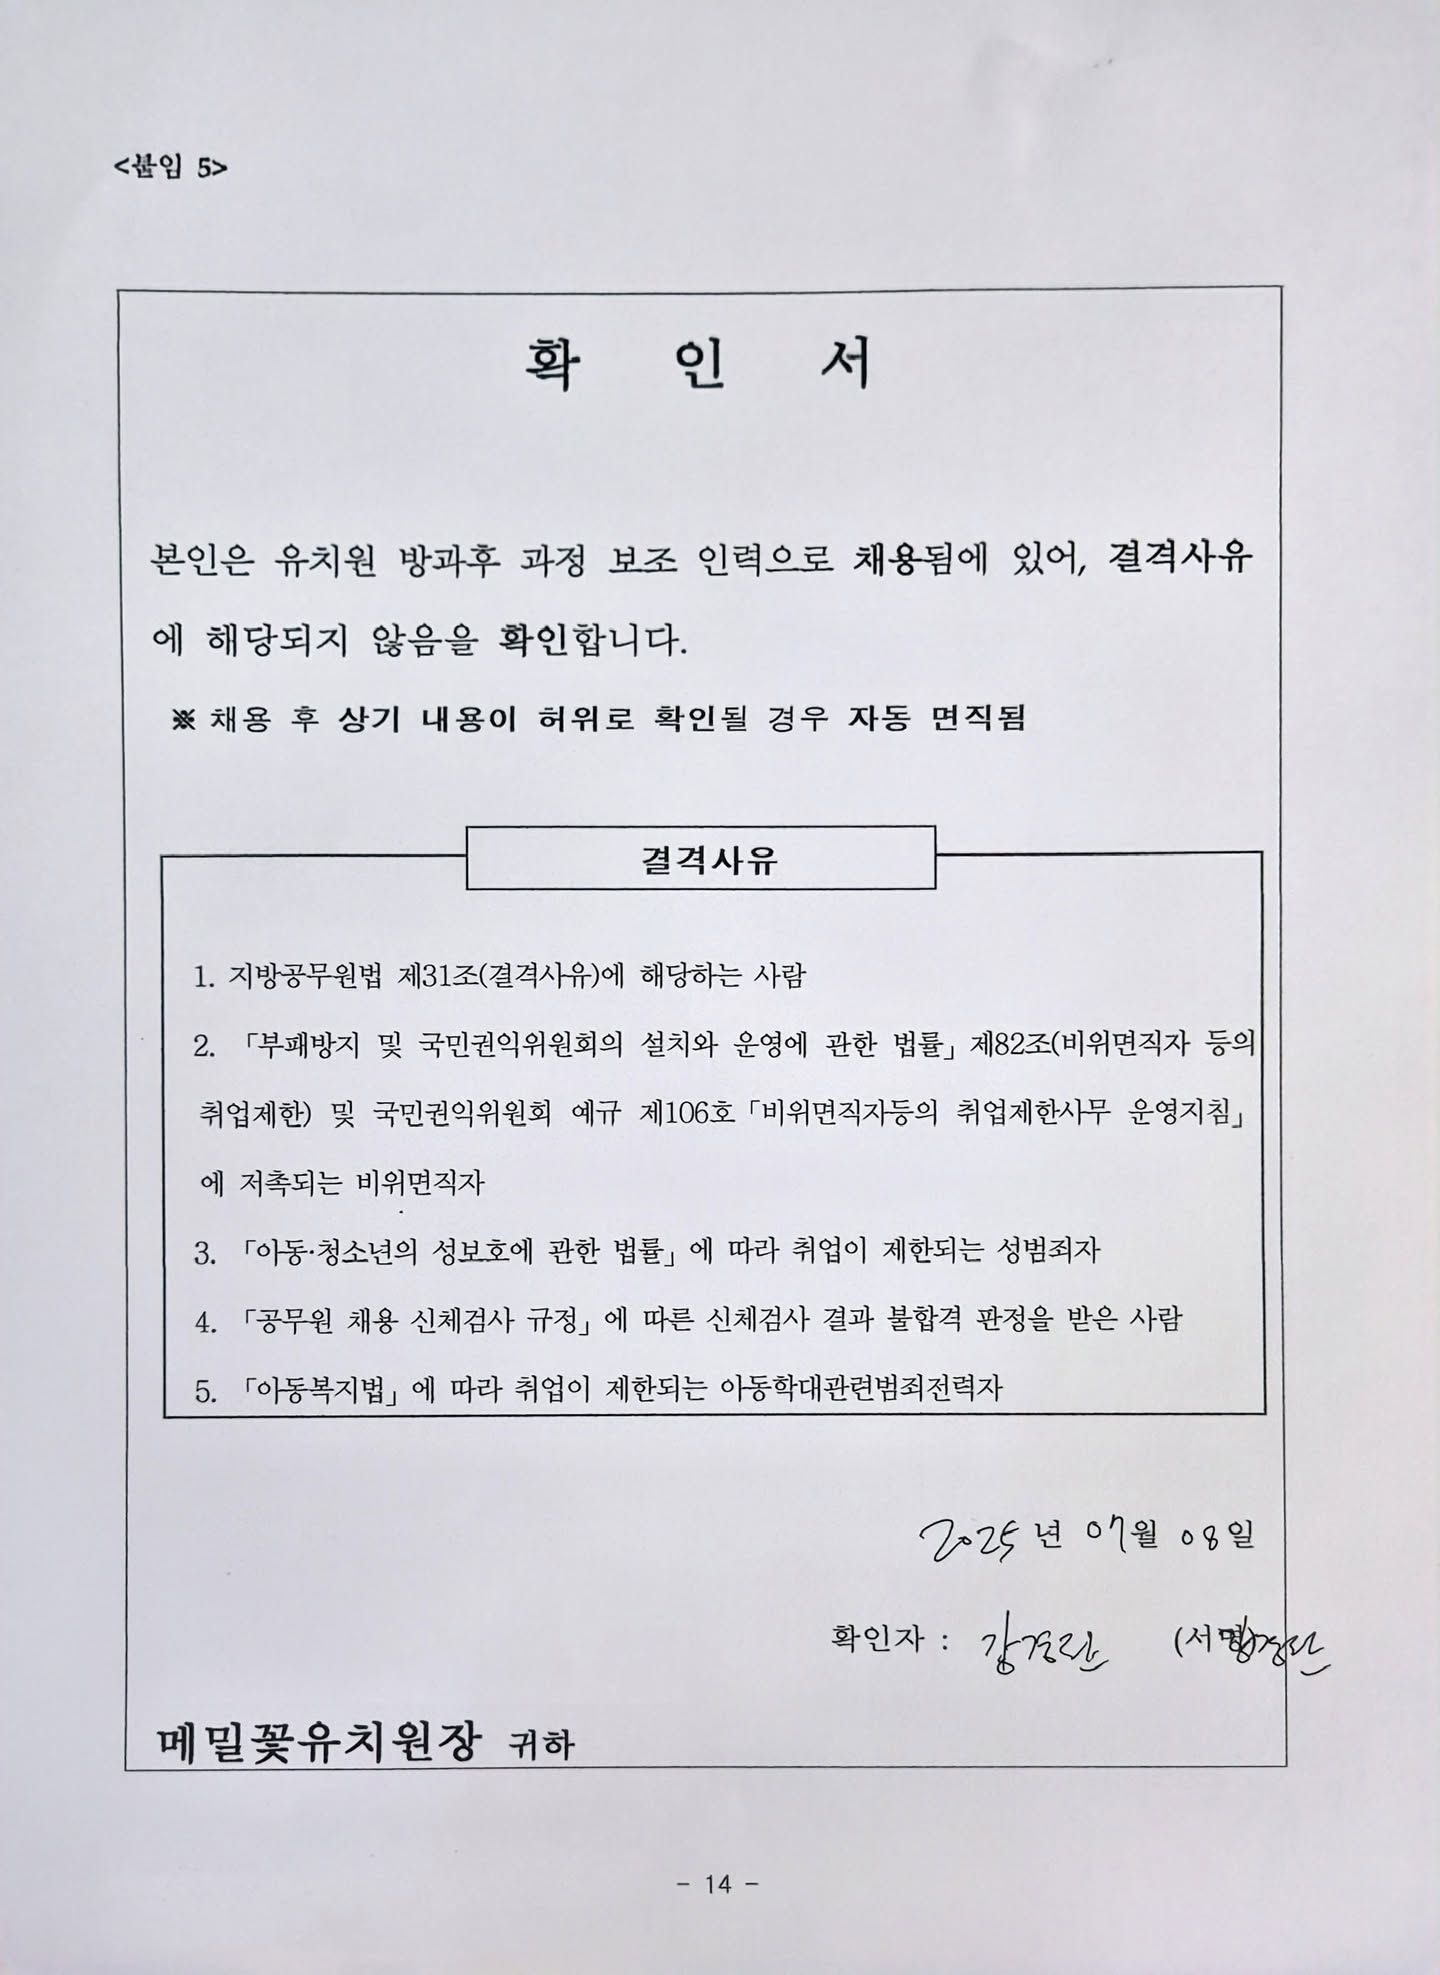 <붙임 5>
확 인 서
본인은 유치원 방과후 과정 보조 인력으로 채용됨에 있어, 결격사유
에 해당되지 않음을 확인합니다.
※ 채용 후 상기 내용이 허위로 확인될 경우 자동 면직됨
결격사유
1. 지방공무원법 제31조(결격사유)에 해당하는 사람
2. 「부패방지 및 국민권익위원회의 설치와 운영에 관한 법률」 제82조(비위면직자 등의
취업제한) 및 국민권익위원회 예규 제106호 「비위면직자등의 취업제한사무 운영지침」
에 저촉되는 비위면직자
3. 「아동·청소년의 성보호에 관한 법률」 에 따라 취업이 제한되는 성범죄자
4. 「공무원 채용 신체검사 규정」 에 따른 신체검사 결과 불합격 판정을 받은 사람
5. 「아동복지법」 에 따라 취업이 제한되는 아동학대관련범죄전력자
2025년 07월 08일
확인자 : 강경란 (서명)경란
메밀꽃유치원장 귀하
- 14 -